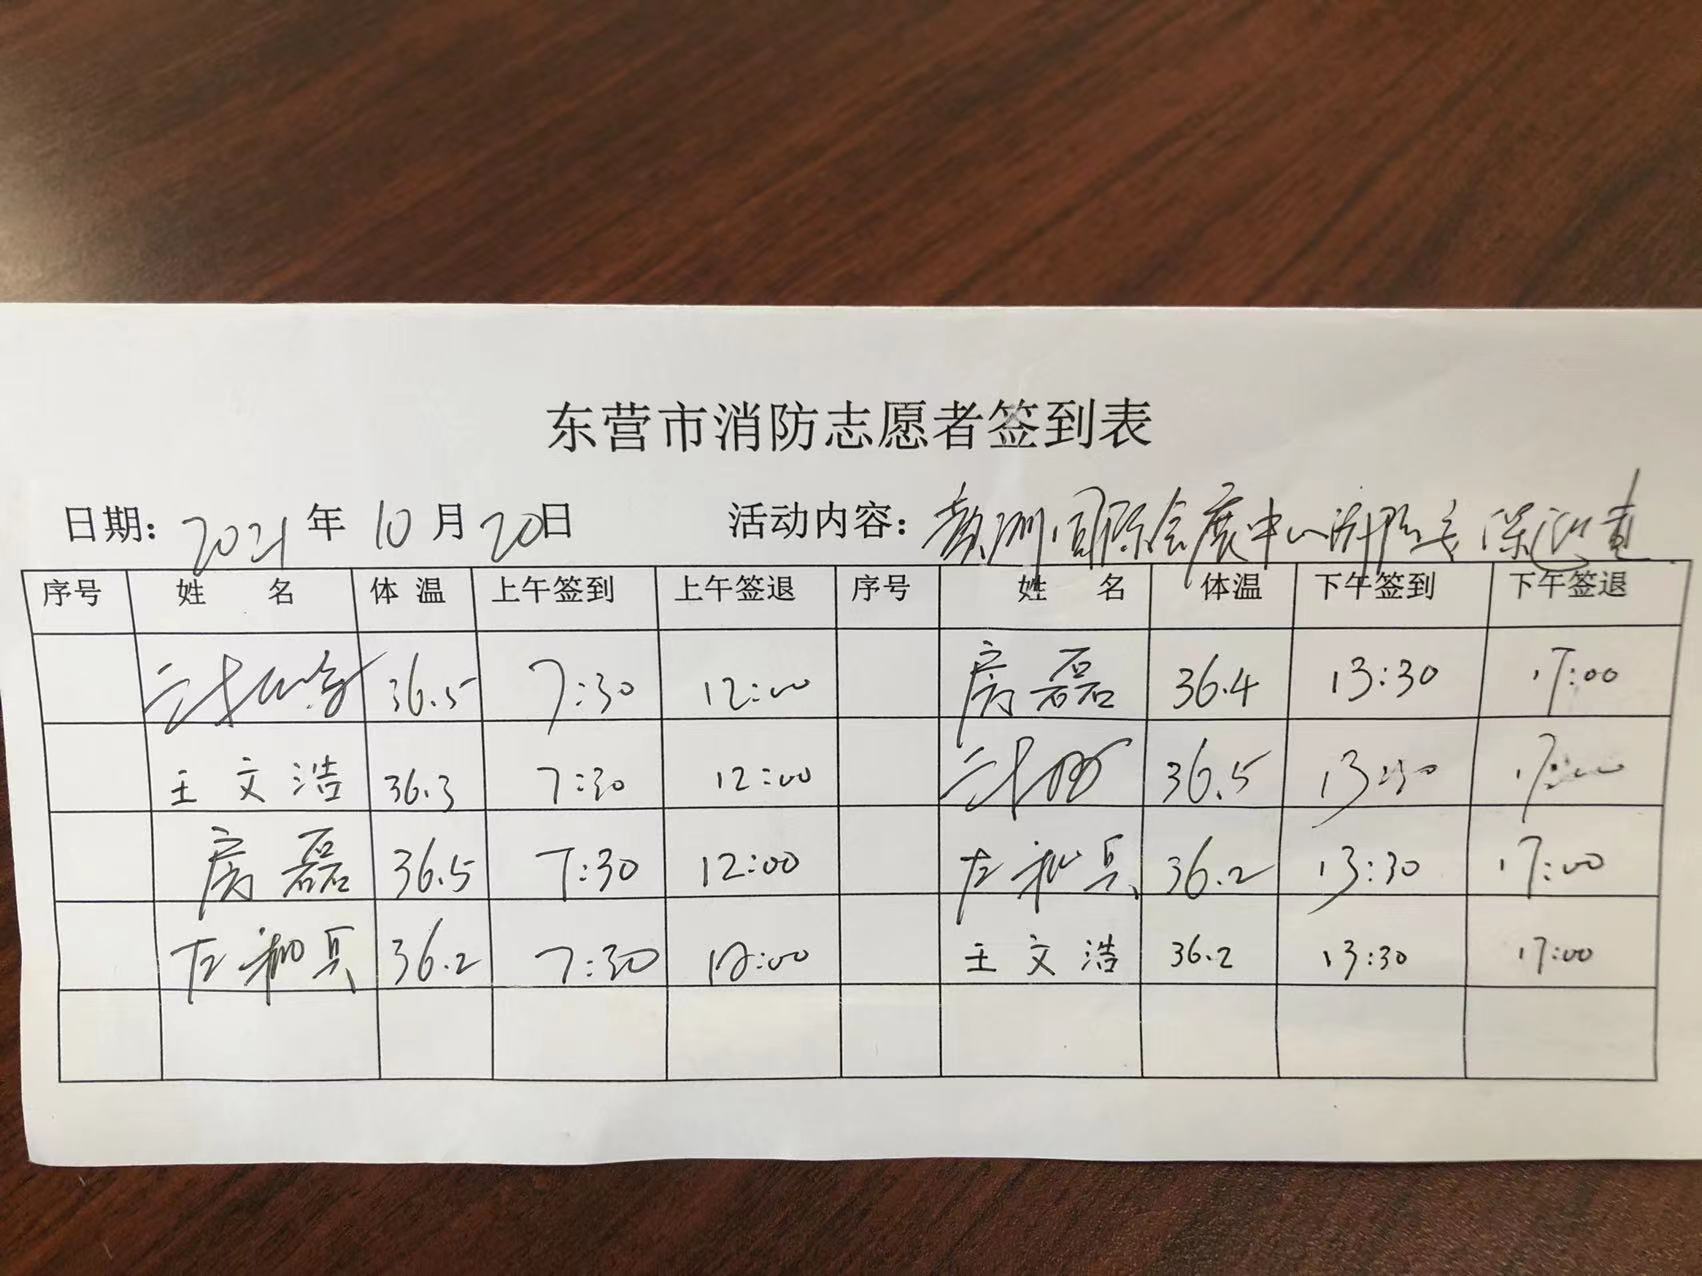 东营市消防志愿者签到表
日期: 2021年10月20日 活动内容: 黄河国际会展中心消防安保
序号 姓 名 体 温 上午签到 上午签退 序号 姓 名 体温 下午签到 下午签退
36.5 7:30 12:00 房磊 36.4 13:30 17:00
王文浩 36.3 7:30 12:00 36.5 13:30 17:00
房磊 36.5 7:30 12:00 左兵 36.2 13:30 17:00
左兵 36.2 7:30 12:00 王文浩 36.2 13:30 17:00